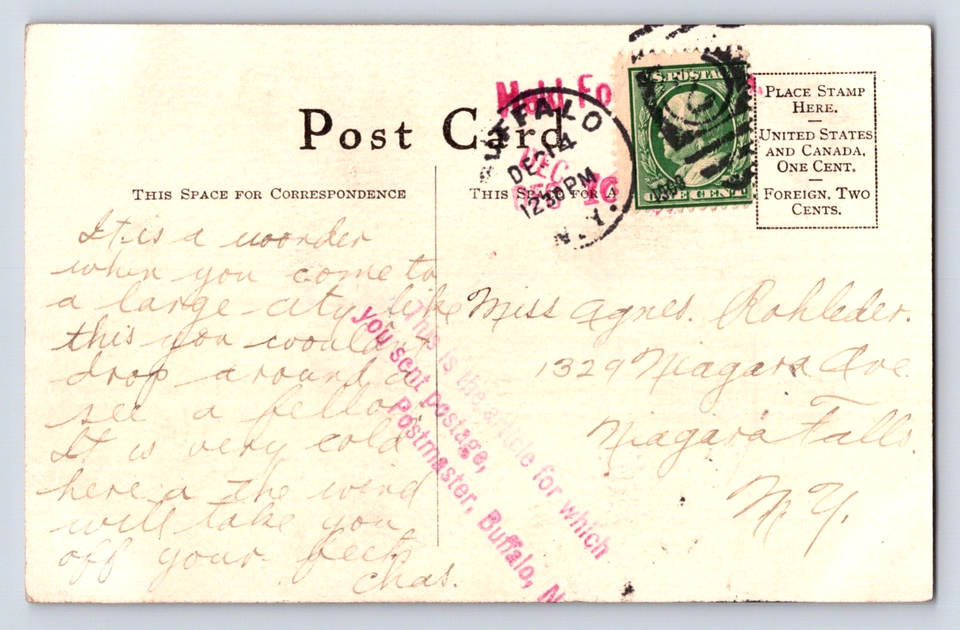 Held Fo
U.S. POSTAG
BUFFALO
DEC 14
12 30 PM
N.Y.
DEC
1C
ONE CENT
PLACE STAMP
HERE.
UNITED STATES
AND CANADA,
ONE CENT.
FOREIGN, TWO
CENTS.
Post Card
THIS SPACE FOR CORRESPONDENCE
THIS SPACE FOR A
It is a wonder
when you come to
a large city like
this you wouldn't
drop around a
see a fellow.
It is very cold
here a the wind
will take you
off your feet.
Chas.
Miss Agnes. Rohleder.
1329 Niagara Ave.
Niagara Falls
N.Y.
This is the article for which
you sent postage,
Postmaster, Buffalo, N